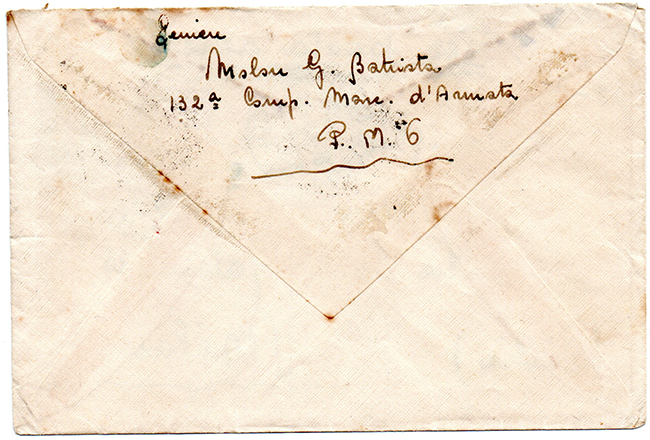 Geniere
Molon G. Batista
132ª Comp. Marc. d'Armata
P. M. 6